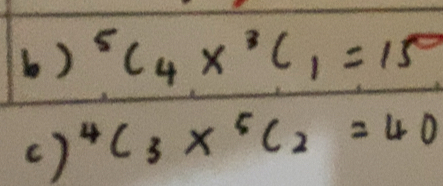 b) ⁵C₄ × ³C₁ = 15
c) ⁴C₃ × ⁵C₂ = 40